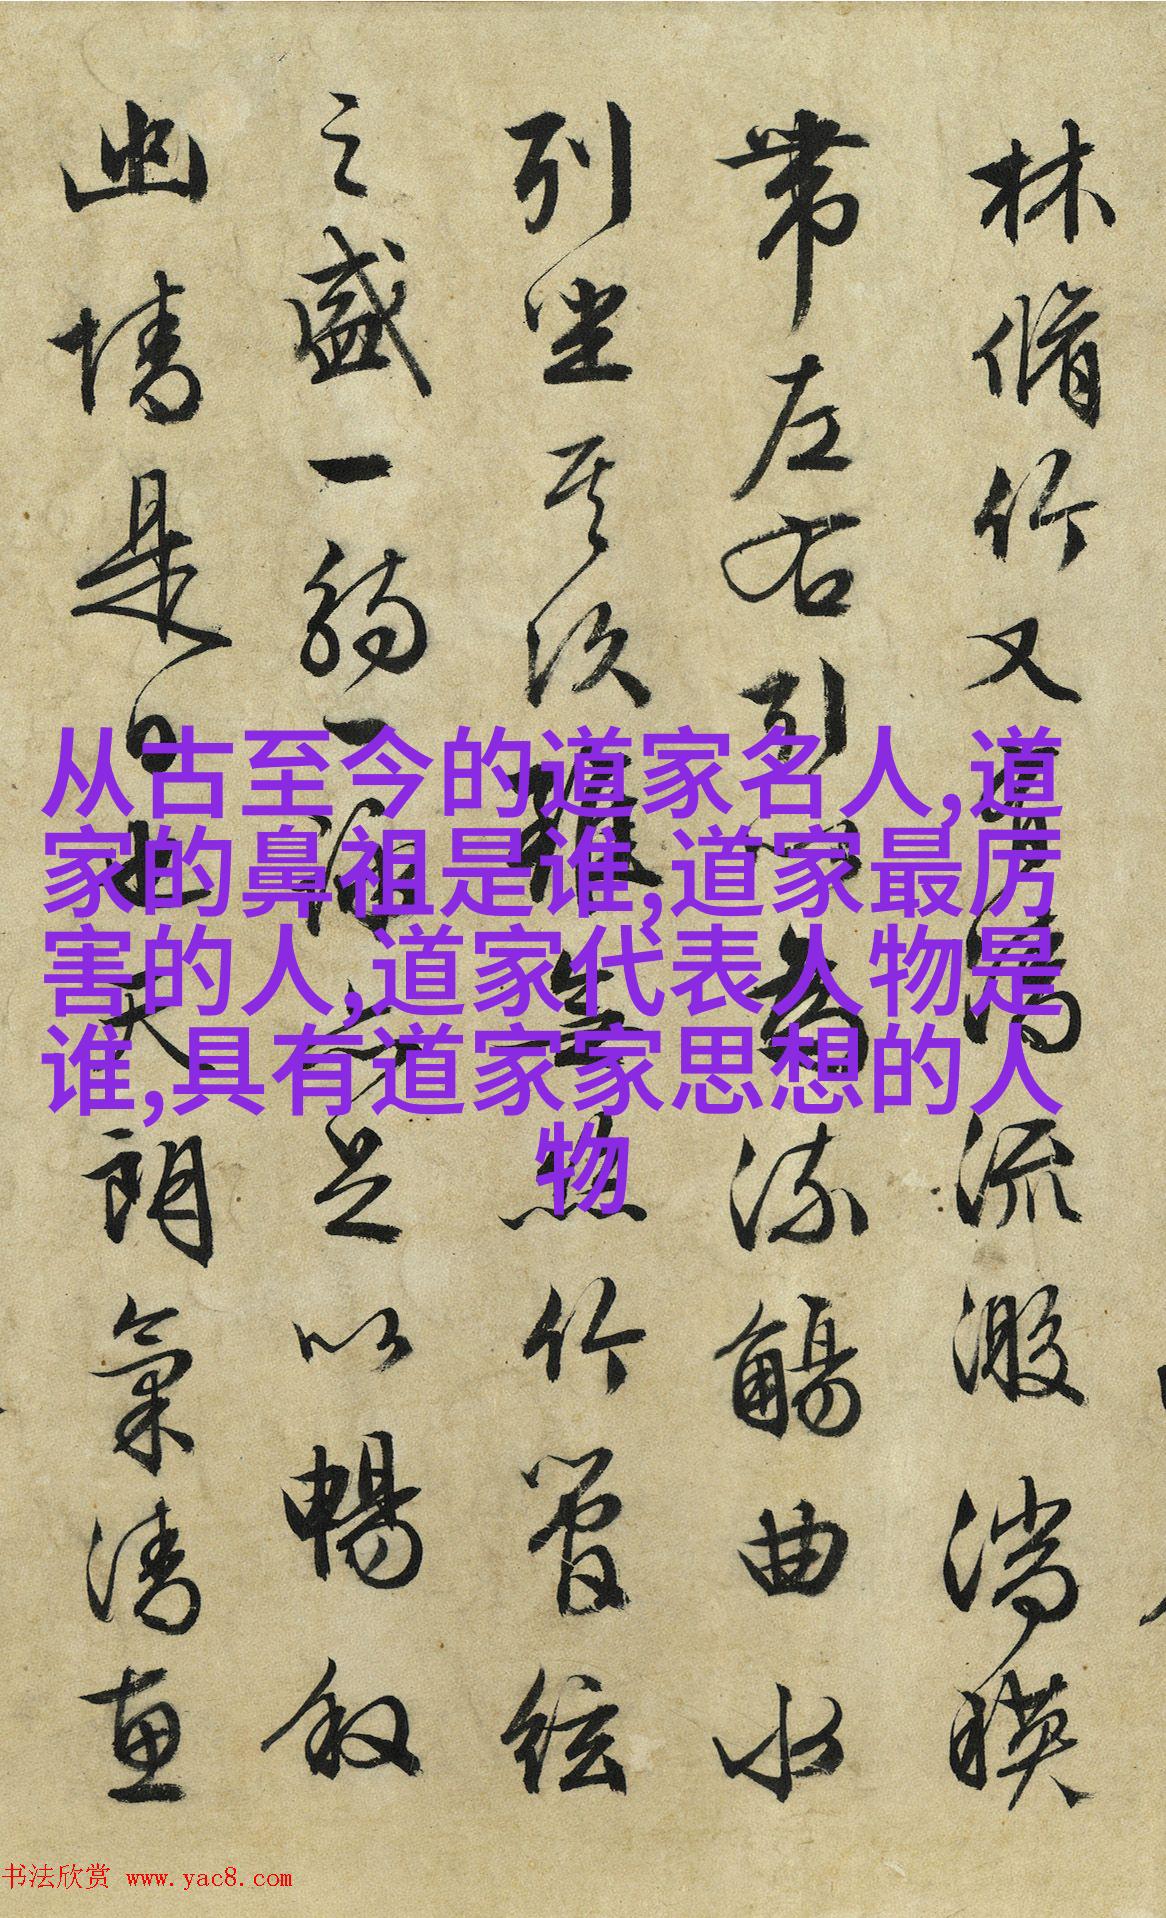 林脩竹又有清流激湍暎
帶左右引以為流觴曲水
列坐其次雖無絲竹管絃
之盛一觴一詠亦足以暢叙
幽情是日也天朗氣清惠
从古至今的道家名人,道
家的鼻祖是谁,道家最厉
害的人,道家代表人物是
谁,具有道家家思想的人
物
书法欣赏 www.yac8.com